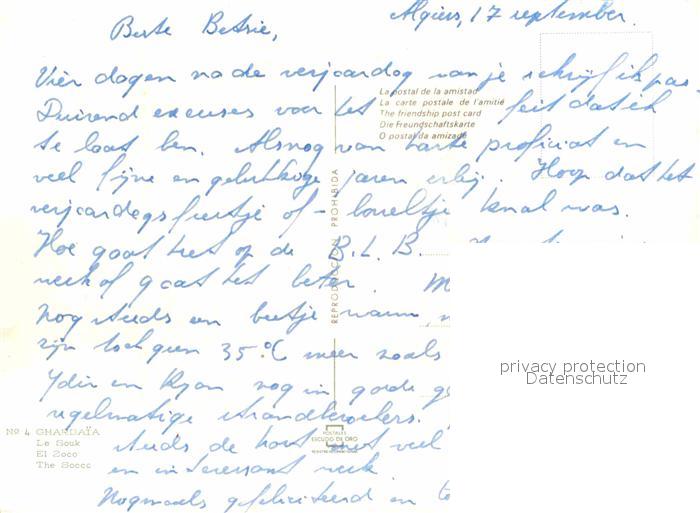 Algiers, 17 september.
Beste Betsie,
Vier dagen na de verjaardag van je schrijf ik pas.
Duizend excuses voor het feit dat ik
te laat ben. Alsnog van harte proficiat en
veel fijne en gelukkige jaren erbij. Hoop dat het
verjaardagsfeestje of - borreltje knal was.
Hoe gaat het op de B.L.B.
werk of gaat het beter. M
Nog steeds een beetje warm,
zijn toch geen 35°C meer zoals
Ydir en Ryan nog in goede
regelmatige strandbezoekers.
steeds de kant met veel
en interessant werk
Nogmaals gefeliciteerd en
La postal de la amistad
La carte postale de l'amitié
The friendship post card
Die Freundschaftskarte
O postal da amizade
REPRODUCCION PROHIBIDA
POSTALES
ESCUDO DE ORO
Nº 4 GHARDAÏA
Le Souk
El Zoco
The Soccc
privacy protection
Datenschutz